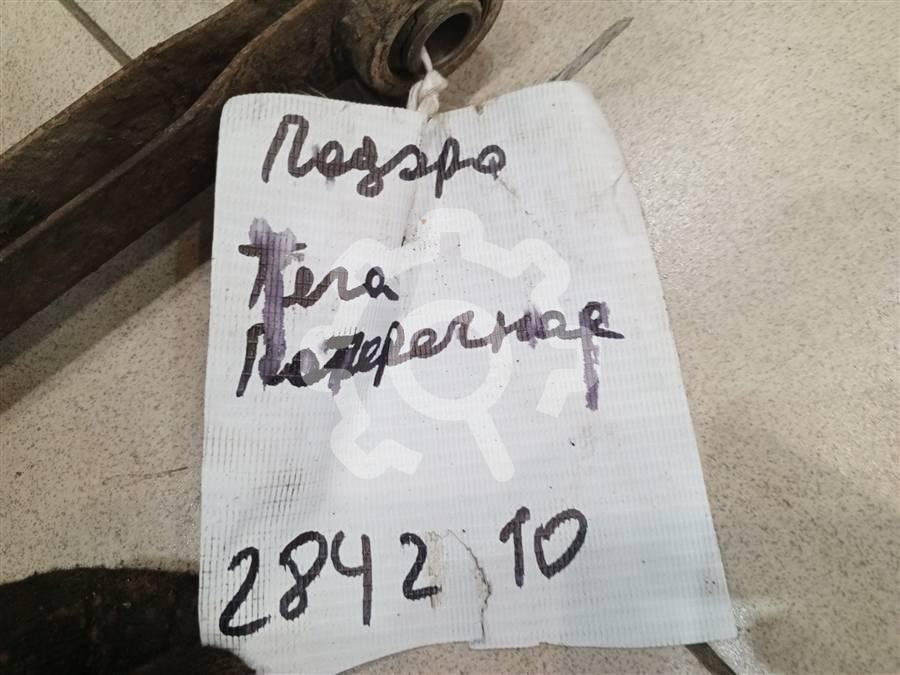 Паджеро
Тяга
Поперечная
2842 10